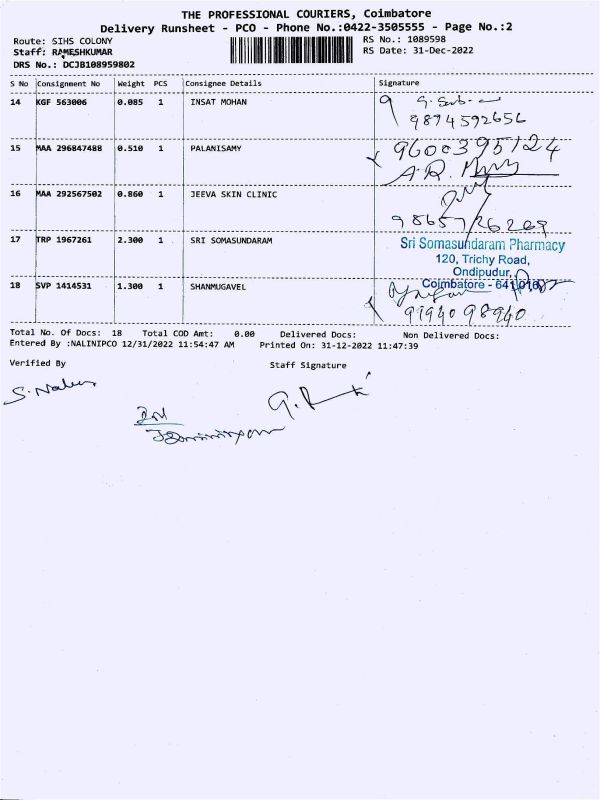 THE PROFESSIONAL COURIERS, Coimbatore
Delivery Runsheet - PCO - Phone No.:0422-3505555 - Page No.:2
Route: SIHS COLONY
RS No.: 1089598
Staff: RAMESHKUMAR
RS Date: 31-Dec-2022
DRS No.: DCJB108959802
S No Consignment No Weight PCS Consignee Details Signature
14 KGF 563006 0.085 1 INSAT MOHAN
9894592656
15 MAA 296847488 0.510 1 PALANISAMY 9600395124
A.R.
16 MAA 292567502 0.860 1 JEEVA SKIN CLINIC
9865726209
17 TRP 1967261 2.300 1 SRI SOMASUNDARAM Sri Somasundaram Pharmacy
120, Trichy Road,
Ondipudur,
18 SVP 1414531 1.300 1 SHANMUGAVEL Coimbatore - 641 016
9994098940
Total No. Of Docs: 18 Total COD Amt: 0.00 Delivered Docs: Non Delivered Docs:
Entered By :NALINIPCO 12/31/2022 11:54:47 AM Printed On: 31-12-2022 11:47:39
Verified By Staff Signature